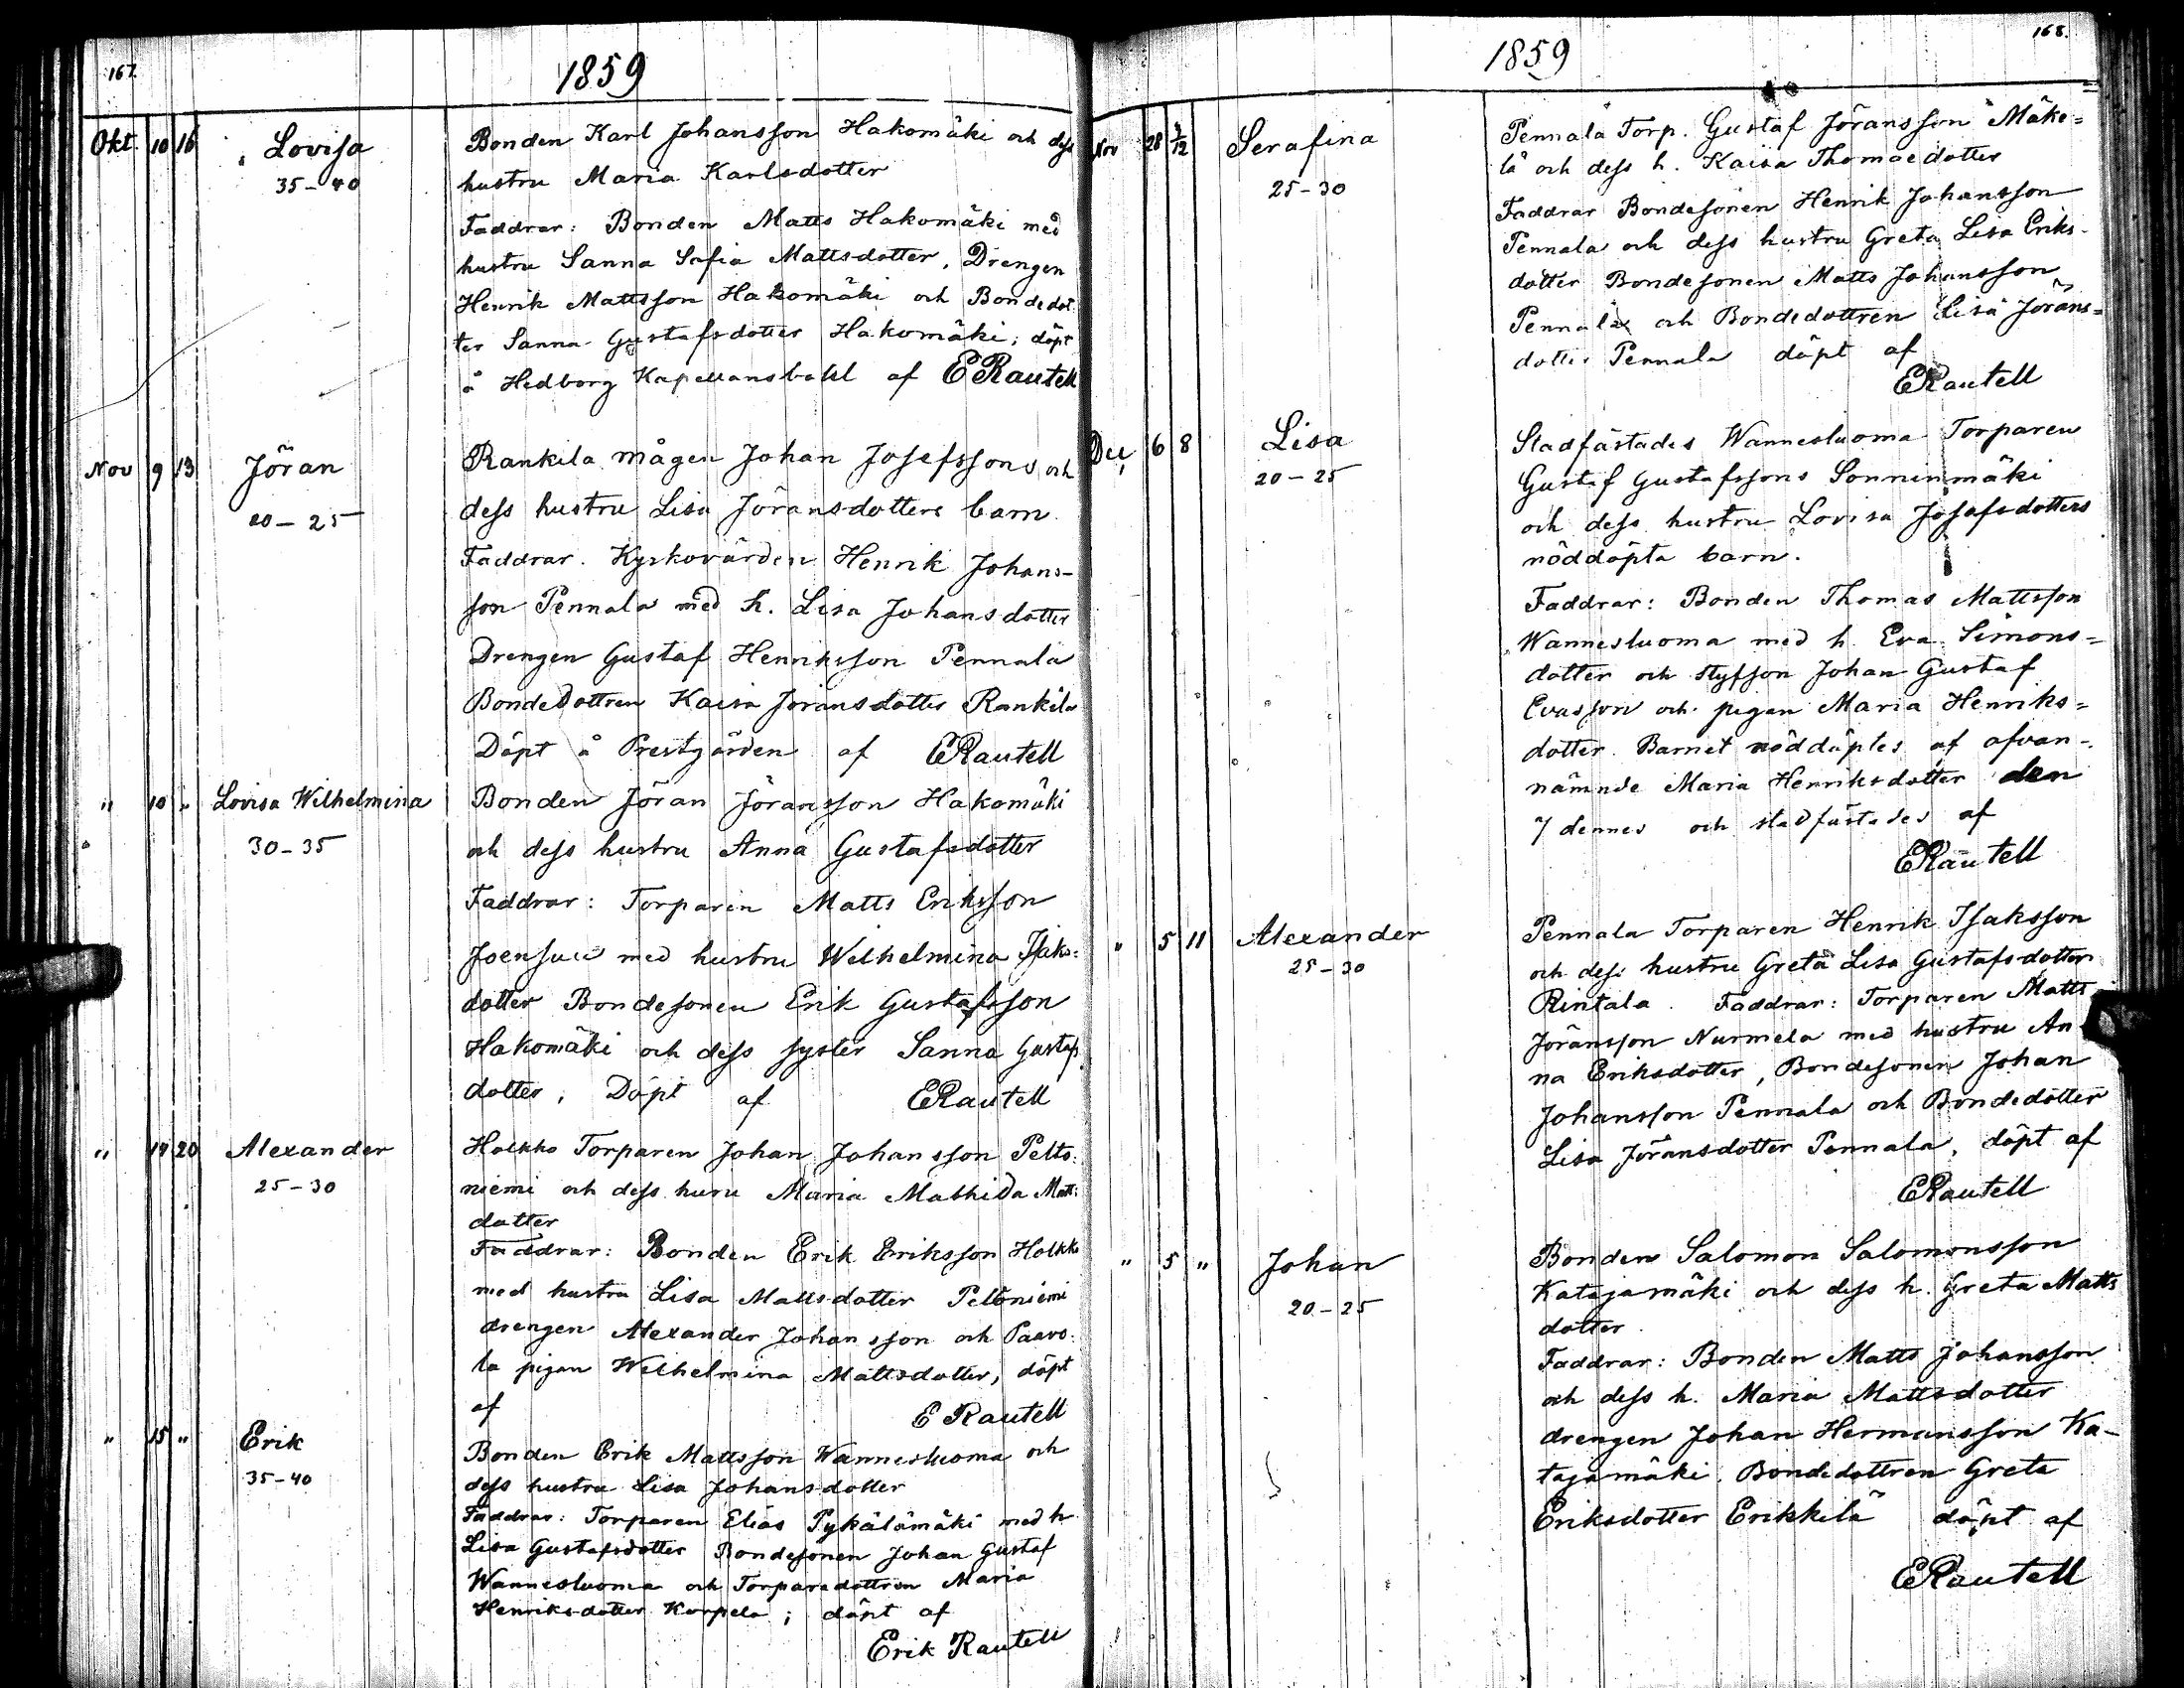 167.
1859
Okt. 10 16 Lovisa
35-40
Bonden Karl Johansson Hakomäki och dess
hustru Maria Karlsdotter
Faddrar: Bonden Matts Hakomäki med
hustru Sanna Sofia Mattsdotter, Drengen
Henrik Mattsson Hakomäki och Bondedot
ter Sanna Gustafsdotter Hakomäki; döpt
å Hedborg Kapellansbohl af ERautell
Nov 9 13 Jöran
20-25
Rankila mågen Johan Josefssons och
dess hustru Lisa Jöransdotters barn
Faddrar. Kyrkovärden Henrik Johans-
son Pennala med h. Lisa Johansdotter
Drengen Gustaf Henriksson Pennala
Bondedottren Kaisa Jöransdotter Rankila
Döpt å Prestgården af ERautell
" 10 " Lovisa Wilhelmina
30-35
Bonden Jöran Jöransson Hakomäki
och dess hustru Anna Gustafsdotter
Faddrar: Torparen Matts Eriksson
Joensuu med hustru Wilhelmina Isaks=
dotter Bondesonen Erik Gustafsson
Hakomäki och dess syster Sanna Gustafs
dotter, Döpt af ERautell
" 14 20 Alexander
25-30
Holkko Torparen Johan Johansson Pelto=
niemi och dess huru Maria Mathilda Matts
dotter
Faddrar: Bonden Erik Eriksson Holkko
med hustru Lisa Mattsdotter Peltoniemi
drengen Alexander Johansson och Paavo=
la pigan Wilhelmina Mattsdotter, döpt
af E Rautell
" 15 " Erik
35-40
Bonden Erik Mattsson Wannesluoma och
dess hustru Lisa Johansdotter
Faddrar: Torparen Elias Pykälämäki med h
Lisa Gustafsdotter Bondesonen Johan Gustaf
Wannesluoma och Torparedottren Maria
Henriksdotter Korpela; döpt af
Erik Rautell
168.
1859
Nov 28 4/12 Serafina
25-30
Pennala Torp. Gustaf Jöransson Mäke=
lä och dess h. Kaisa Thomaedotter
Faddrar Bondesonen Henrik Johansson
Pennala och dess hustru Greta Lisa Eriks-
dotter Bondesonen Matts Johansson
Pennala och Bondedottren Lisa Jörans=
dotter Pennala döpt af
ERautell
Dec 6 8 Lisa
20-25
Stadfästades Wannesluoma Torparen
Gustaf Gustafssons Sonninmäki
och dess hustru Lovisa Josafsdotters
nöddöpta barn.
Faddrar: Bonden Thomas Mattsson
Wannesluoma med h. Eva Simons=
dotter och styfson Johan Gustaf
Evasson och pigan Maria Henriks=
dotter. Barnet nöddöptes af ofvan-
nämnde Maria Henriksdotter den
7 dennes och stadfästades af
ERautell
" 5 11 Alexander
25-30
Pennala Torparen Henrik Isaksson
och dess hustru Greta Lisa Gustafsdotter
Rintala. Faddrar: Torparen Matts
Jöransson Nurmela med hustru An-
na Eriksdotter, Bondesonen Johan
Johansson Pennala och Bondedotter
Lisa Jöransdotter Pennala, döpt af
ERautell
" 5 " Johan
20-25
Bonden Salomon Salomonsson
Katajamäki och dess h. Greta Matts
dotter.
Faddrar: Bonden Matts Johansson
och dess h. Maria Mattsdotter
drengen Johan Hermansson Ka-
tajamäki, Bondedottren Greta
Eriksdotter Erikkilä döpt af
ERautell